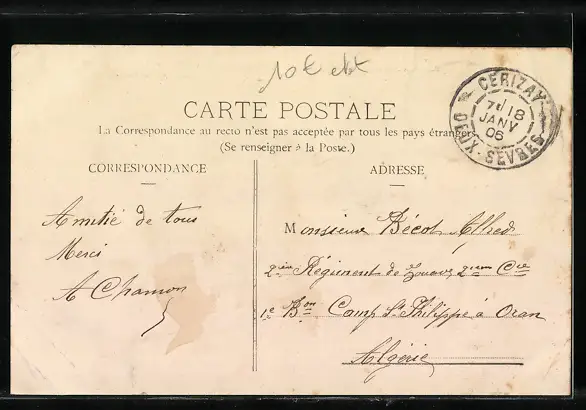 10€
CARTE POSTALE
La Correspondance au recto n'est pas acceptée par tous les pays étrangers
(Se renseigner à la Poste.)
CERIZAY
7E 18
JANV
06
DEUX-SEVRES
CORRESPONDANCE
Amitié de tous
Merci
A Chamon
ADRESSE
Monsieur Bécot Alfred
2ième Régiment de Zouave 2ième Cie
1e Bon Camp St Philippe à Oran
Algérie